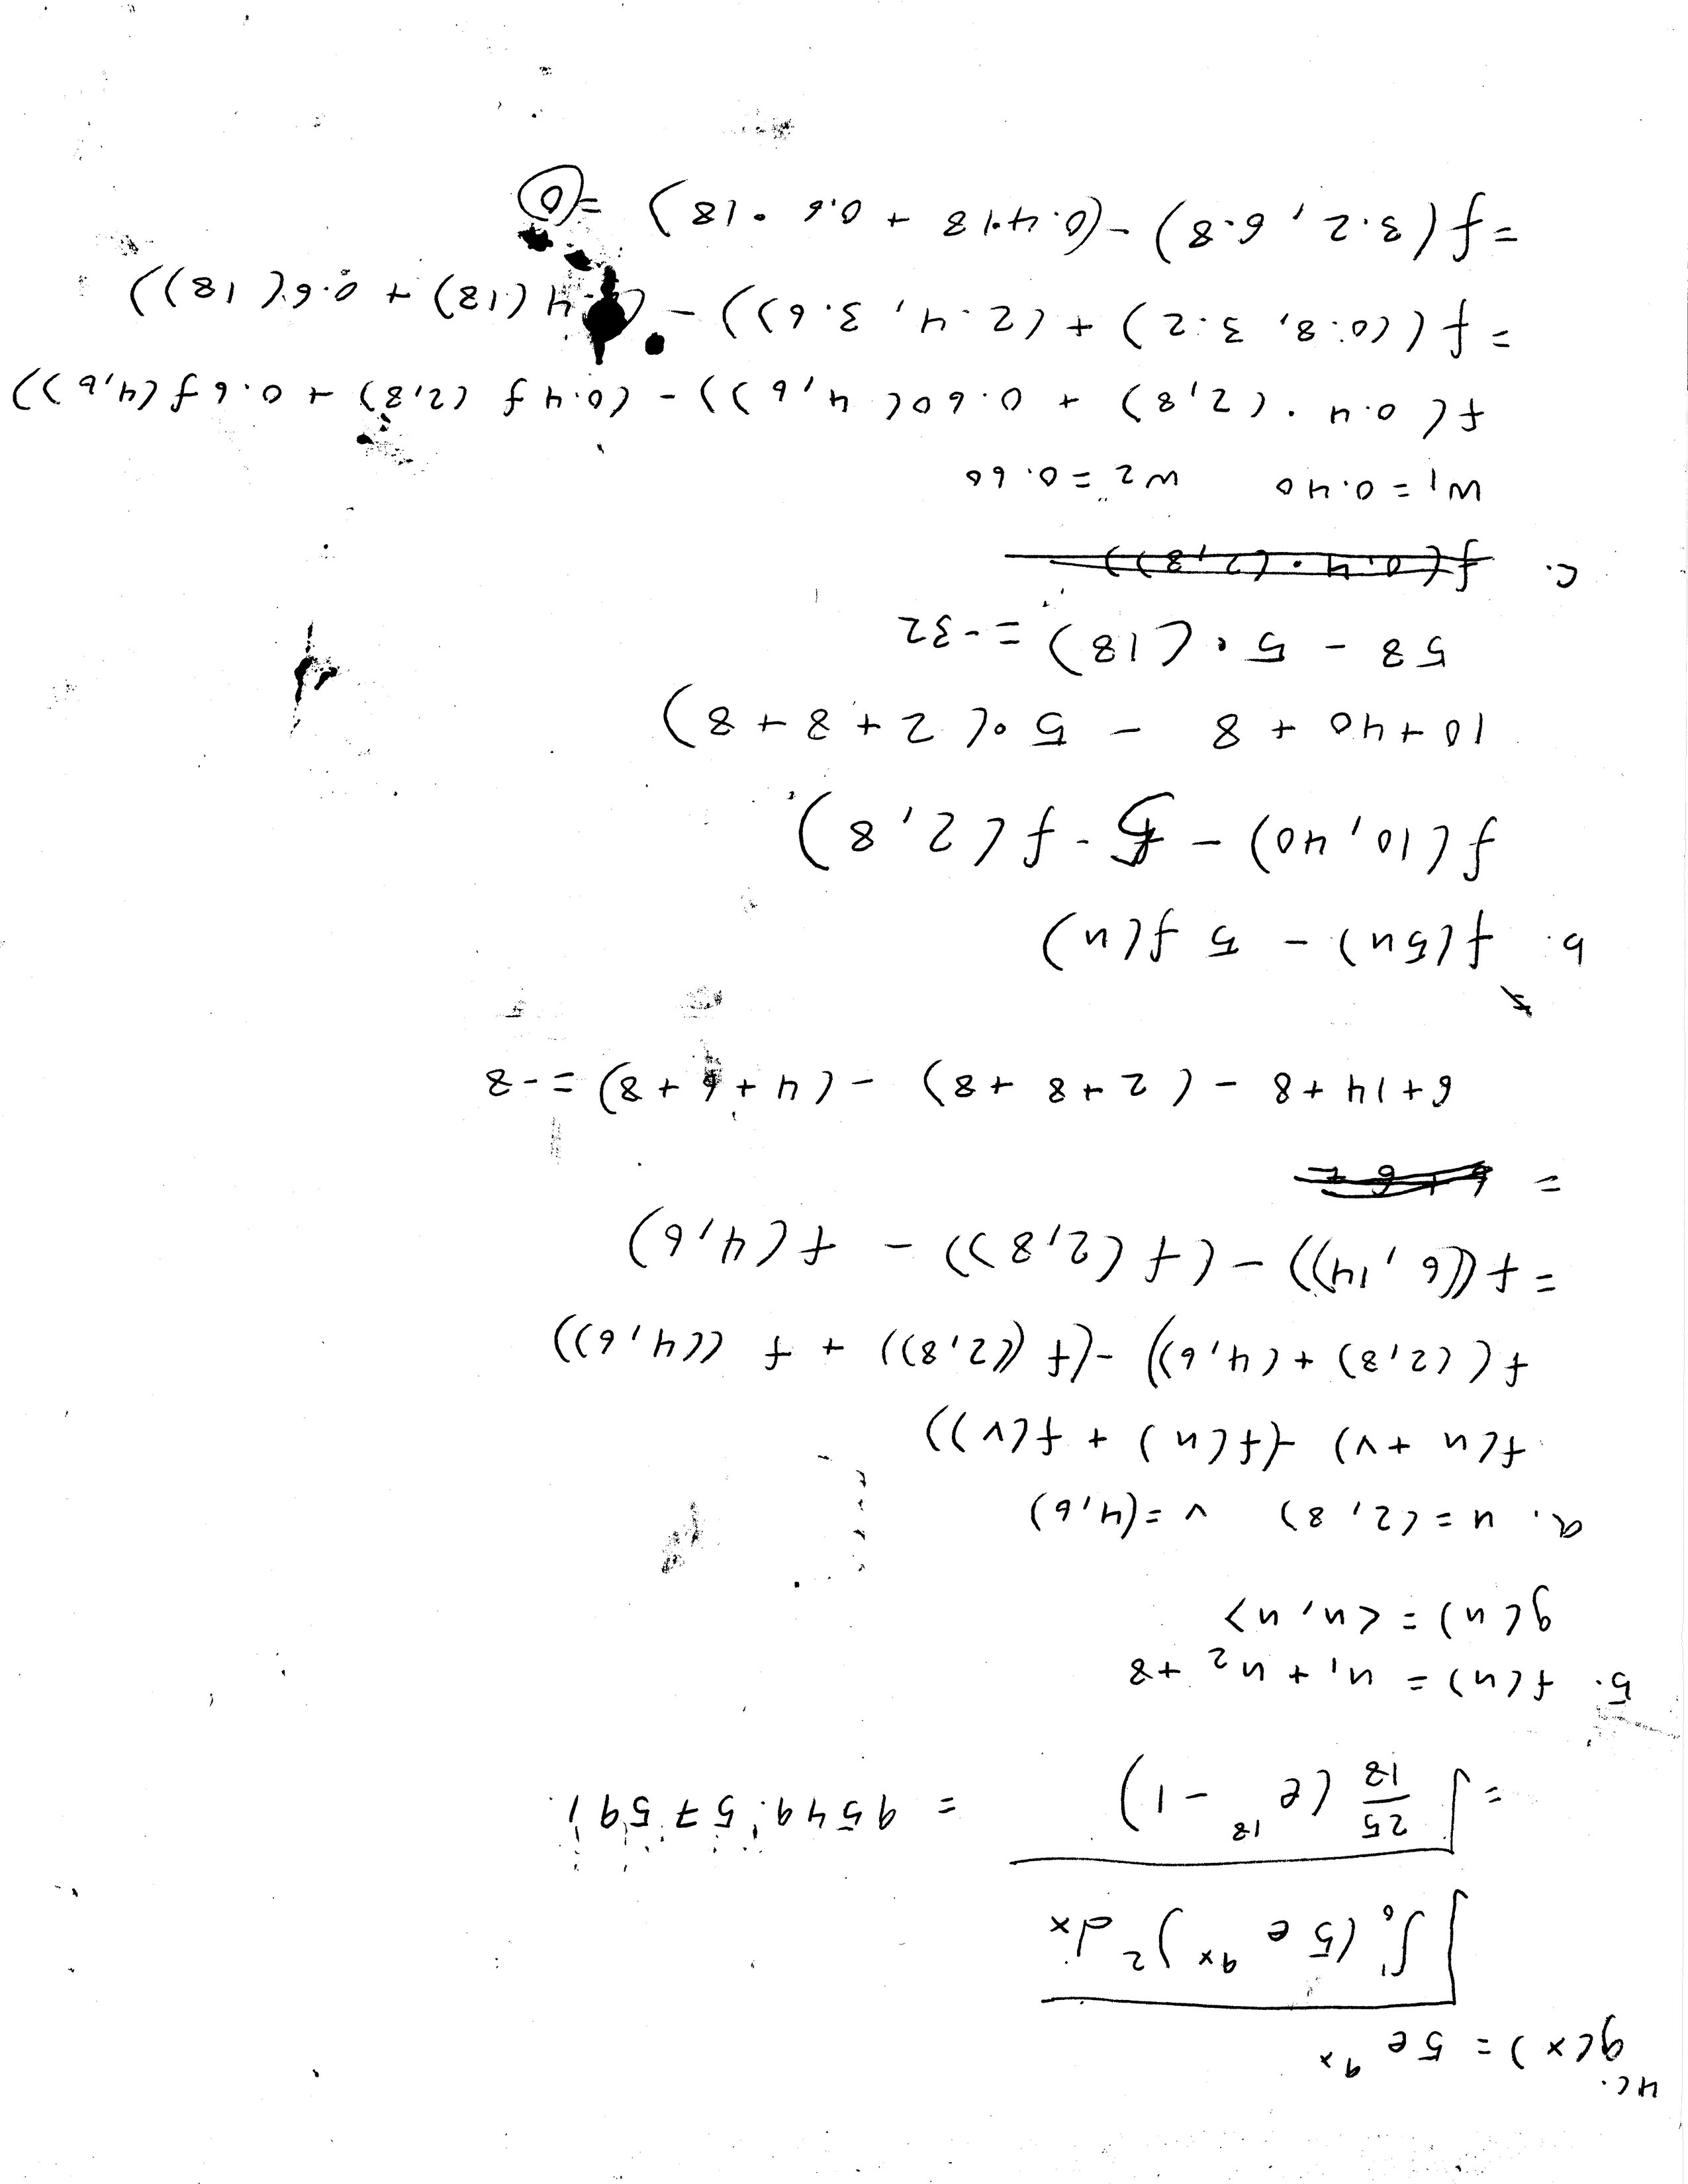 4c.
g(x) = 5e^{9x}
√(∫₀¹ (5e^{9x})² dx)
= √(25/18 (e^{18} - 1)) = 9549.57591
5. f(u) = u₁ + u₂ + 8
g(u) = <u, u>
a. u = (2, 8) v = (4,6)
f(u + v) - (f(u) + f(v))
f((2,8) + (4,6)) - (f((2,8)) + f((4,6))
= f((6, 14)) - (f(2,8)) - f(4,6)
=
6 + 14 + 8 - (2 + 8 + 8) - (4 + 6 + 8) = -8
b. f(5u) - 5 f(u)
f(10, 40) - 5 - f(2, 8)
10 + 40 + 8 - 5 • (2 + 8 + 8)
58 - 5 • (18) = -32
c. f(0.4 • (2,8))
w₁ = 0.40 w₂ = 0.60
f(0.4 • (2,8) + 0.60(4,6)) - (0.4 f(2,8) + 0.6 f(4,6))
= f((0.8, 3.2) + (2.4, 3.6)) - (0.4(18) + 0.6(18))
= f(3.2, 6.8) - (0.4•18 + 0.6•18) = 0